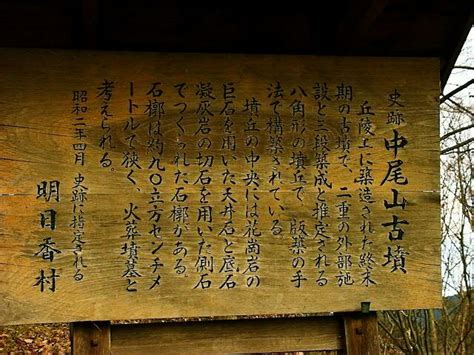 史跡 中尾山古墳
丘陵上に築造された終末
期の古墳で、二重の外部施
設と三段築成と推定される
八角形の墳丘で、版築の手
法で構築されている。
墳丘の中央には花崗岩の
巨石を用いた天井石と底石
凝灰岩の切石を用いた側石
でつくられた石槨がある。
石槨は約九〇立方センチメ
ートルで狭く、火葬墳墓と
考えられる。
昭和二年四月 史跡に指定される
明日香村